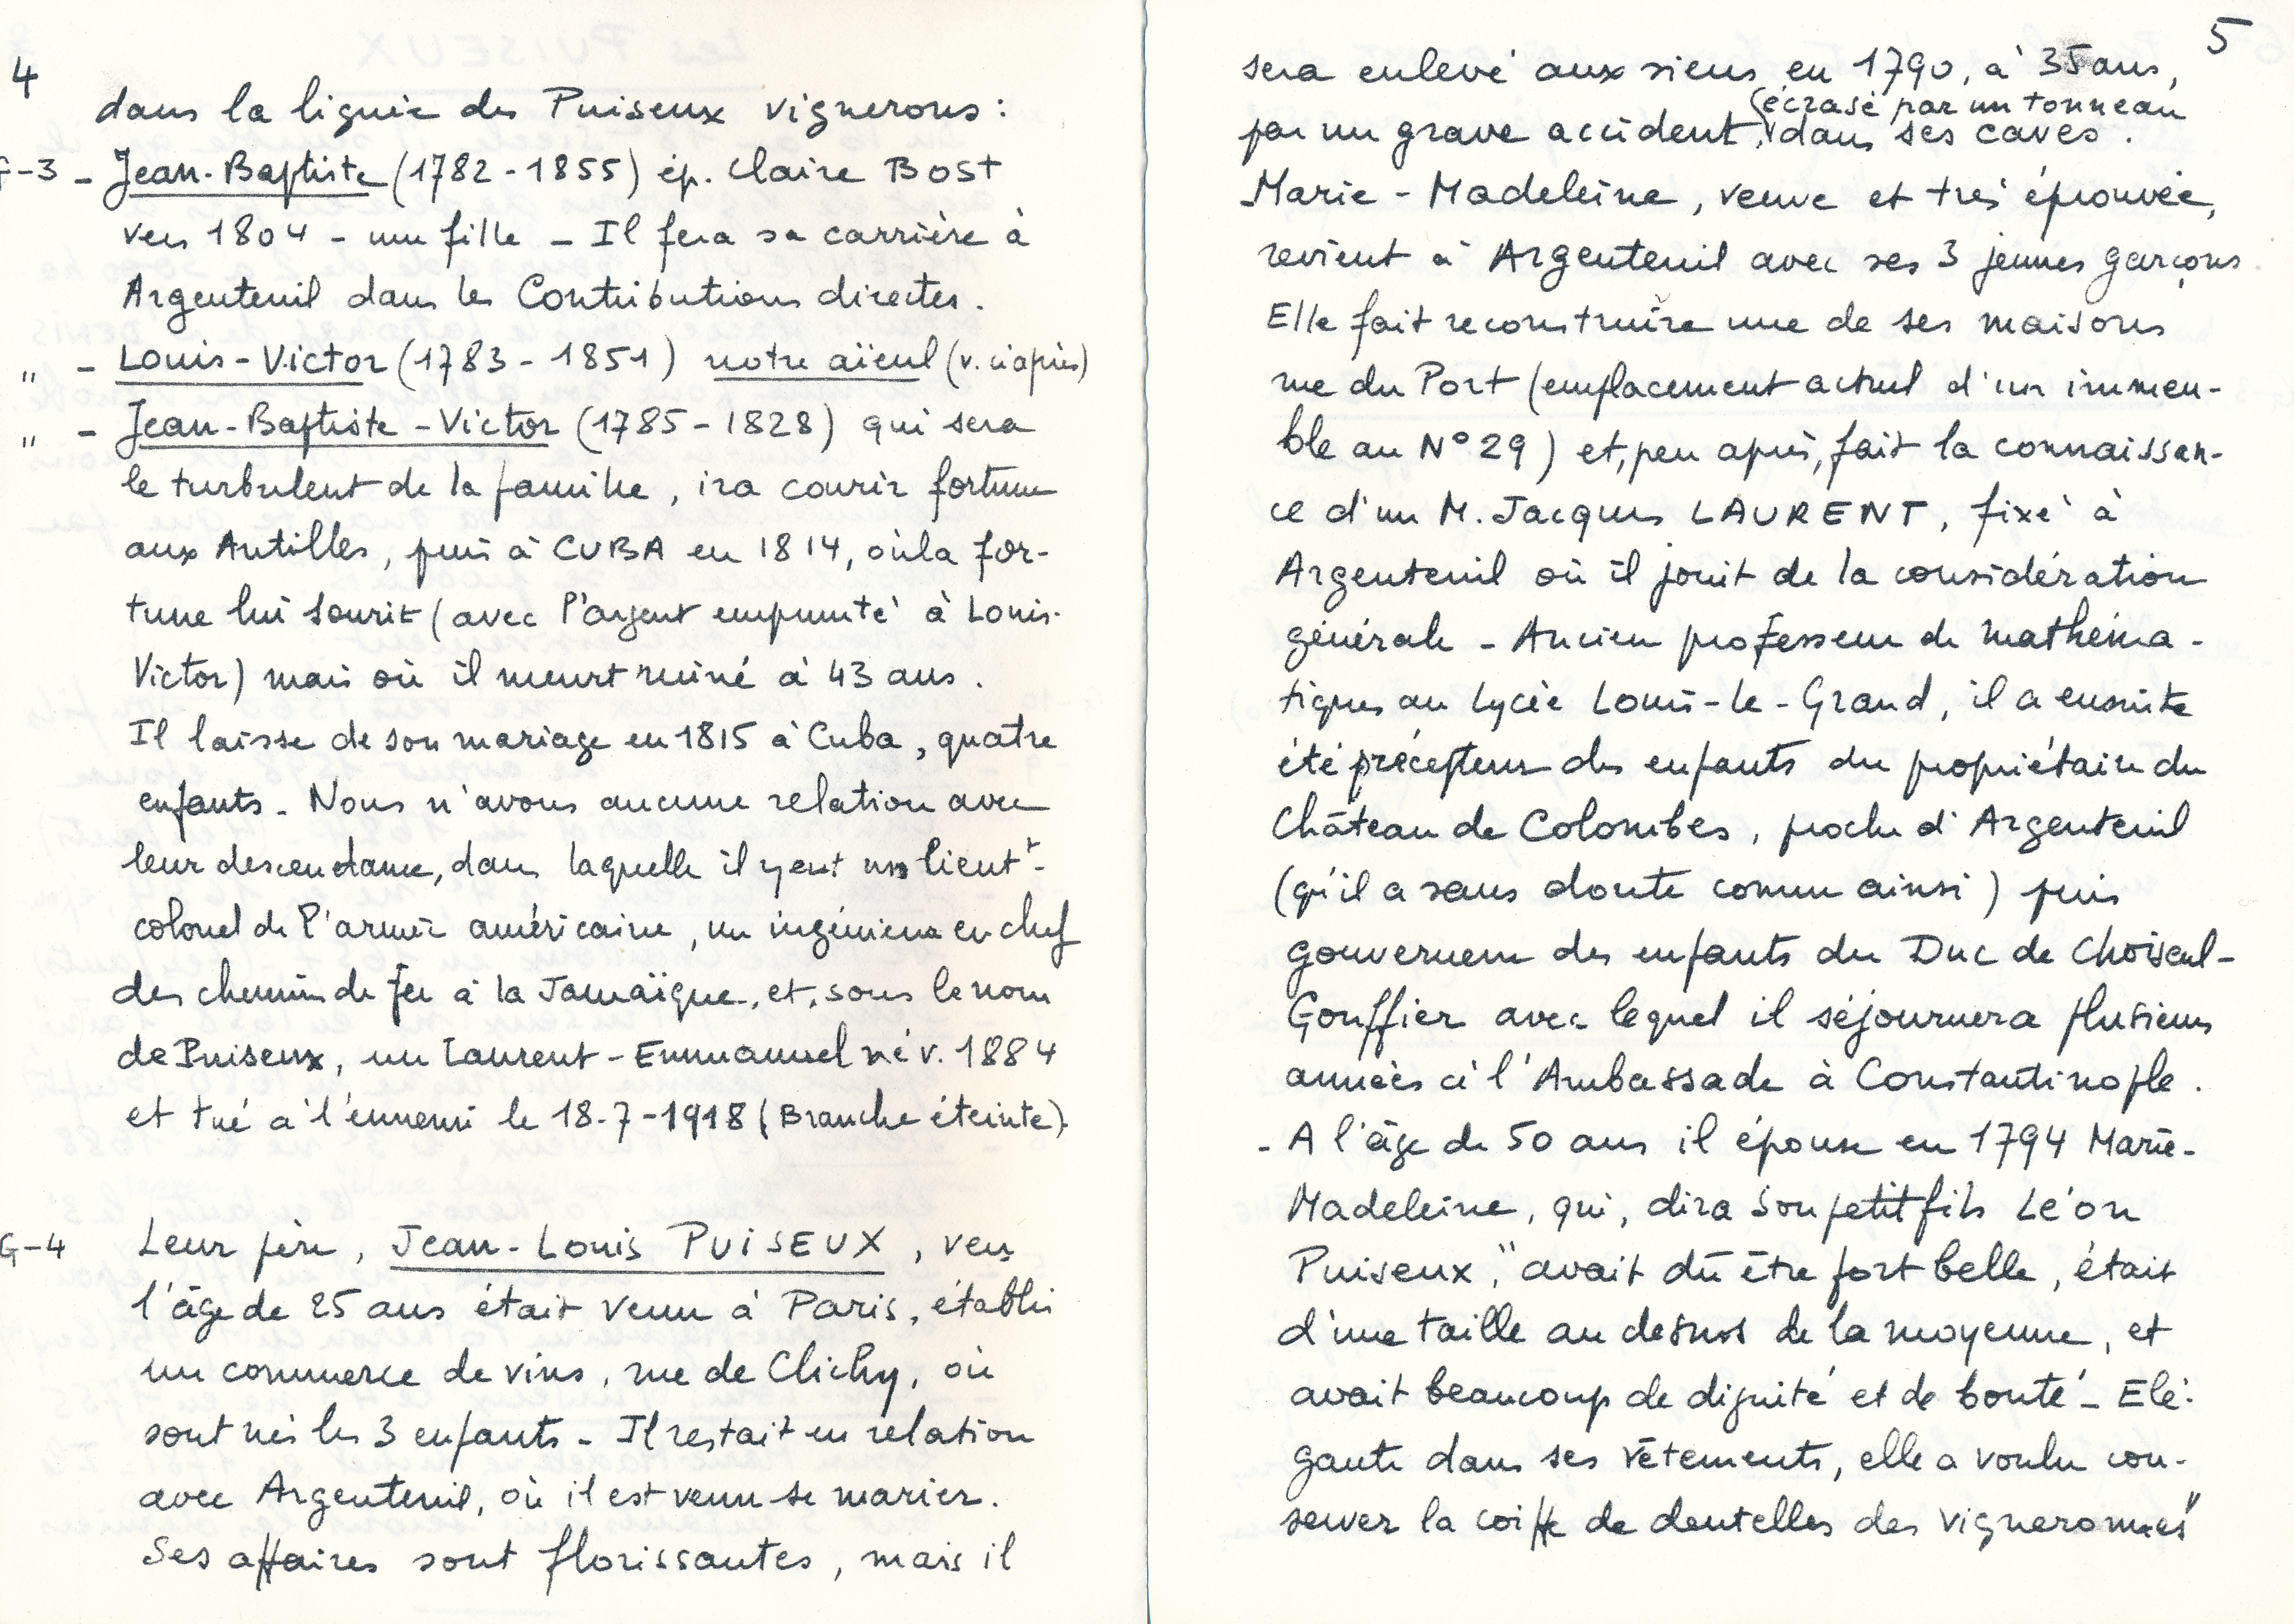 4
dans la lignée des Puiseux vignerons :
G-3 - Jean-Baptiste (1782 - 1855) ép. Claire BOST
vers 1804 - une fille - Il fera sa carrière à
Argenteuil dans les Contributions directes.
" - Louis-Victor (1783 - 1851) notre aïeul (v. ci après)
" - Jean-Baptiste-Victor (1785 - 1828) qui sera
le turbulent de la famille, ira courir fortune
aux Antilles, puis à CUBA en 1814, où la for-
tune lui sourit (avec l'argent emprunté à Louis-
Victor) mais où il meurt ruiné à 43 ans.
Il laisse de son mariage en 1815 à Cuba, quatre
enfants. Nous n'avons aucune relation avec
leur descendance, dans laquelle il y eut un lieutt-
colonel de l'armée américaine, un ingénieur en chef
des chemins de fer à la Jamaïque, et, sous le nom
de Puiseux, un Laurent-Emmanuel né v. 1884
et tué à l'ennemi le 18-7-1918 (Branche éteinte).
G-4 Leur père, Jean-Louis PUISEUX, vers
l'âge de 25 ans était venu à Paris, établi
un commerce de vins, rue de Clichy, où
sont nés les 3 enfants - Il restait en relation
avec Argenteuil, où il est venu se marier.
Ses affaires sont florissantes, mais il
5
sera enlevé aux siens en 1790, à 35 ans,
(écrasé par un tonneau
par un grave accident, dans ses caves.
Marie-Madeleine, veuve et très éprouvée,
revient à Argenteuil avec ses 3 jeunes garçons.
Elle fait reconstruire une de ses maisons
rue du Port (emplacement actuel d'un immeu-
ble au N° 29) et, peu après, fait la connaissan-
ce d'un M. Jacques LAURENT, fixé à
Argenteuil où il jouit de la considération
générale - Ancien professeur de mathéma-
tiques au Lycée Louis-le-Grand, il a ensuite
été précepteur des enfants du propriétaire du
Château de Colombes, proche d'Argenteuil
(qu'il a sans doute connu ainsi) puis
gouverneur des enfants du Duc de Choiseul-
Gouffier avec lequel il séjournera plusieurs
années à l'Ambassade à Constantinople.
- A l'âge de 50 ans il épouse en 1794 Marie-
Madeleine, qui, dira son petit fils Léon
Puiseux, "avait dû être fort belle, était
d'une taille au dessus de la moyenne, et
avait beaucoup de dignité et de bonté - Elé-
gante dans ses vêtements, elle a voulu con-
server la coiffe de dentelles des vigneronnes"